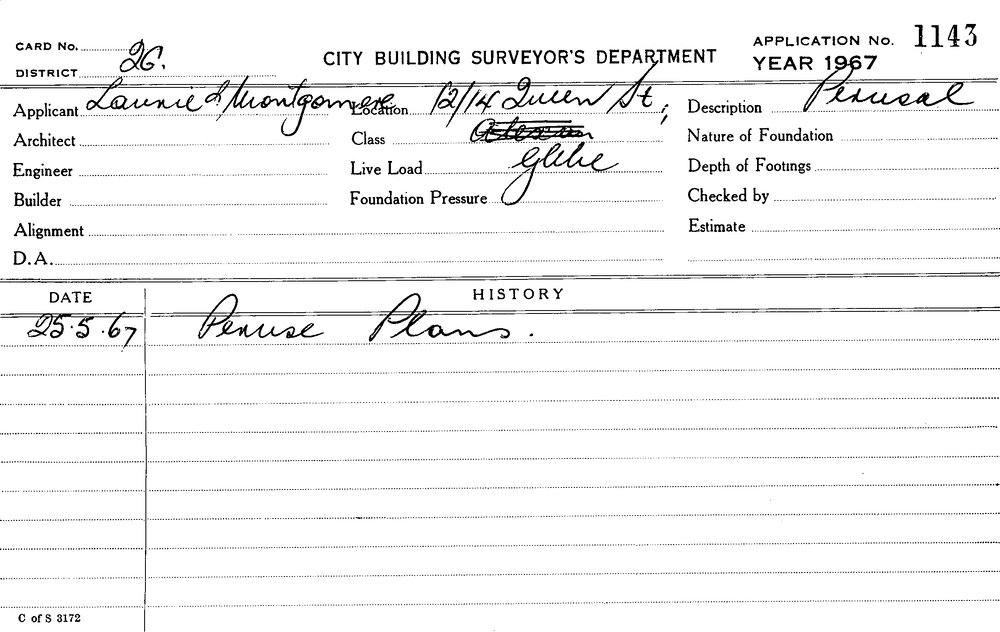 CARD No. CITY BUILDING SURVEYOR'S DEPARTMENT APPLICATION No. 1143
DISTRICT 26. YEAR 1967
Applicant Laurie & Montgomerie Location 12/14 Queen St, Description Perusal
Architect Class Nature of Foundation
Engineer Live Load Glebe Depth of Footings
Builder Foundation Pressure Checked by
Alignment Estimate
D.A.
DATE HISTORY
25.5.67 Peruse Plans.
C of S 3172